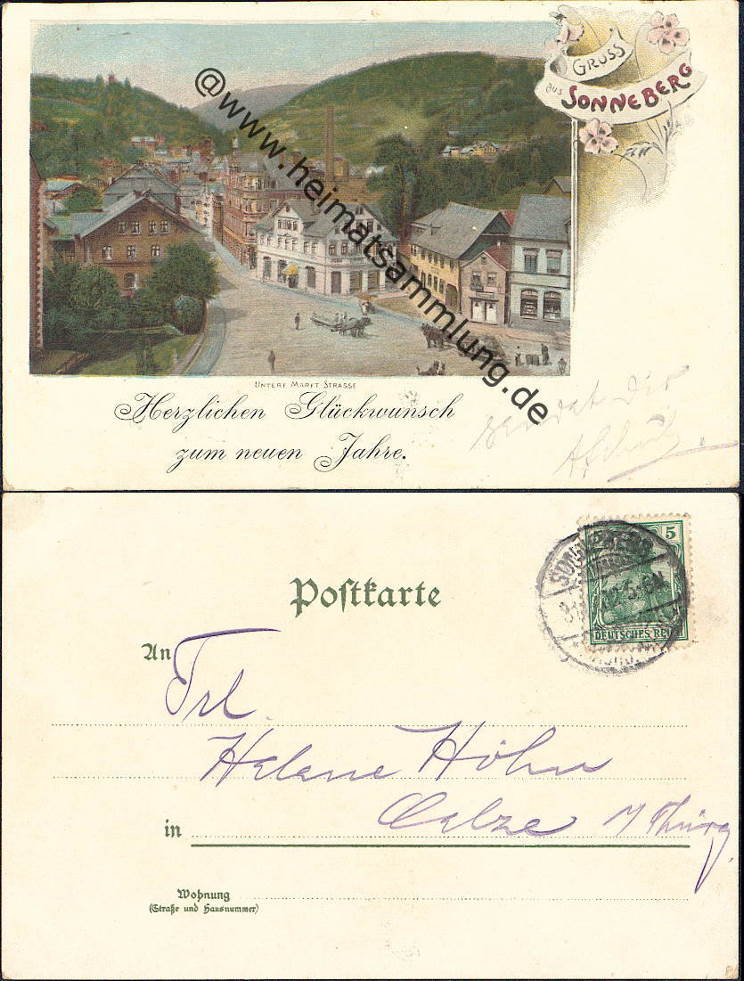 GRUSS
aus SONNEBERG
@www.heimatsammlung.de
UNTERE MARKT STRASSE
Herzlichen Glückwunsch
zum neuen Jahre.
sendet Dir
Postkarte
5
DEUTSCHES REICH
SONNEBERG
An
Frl
Helene Höhn
in
Oelze i/Thürg
Wohnung
(Straße und Hausnummer)